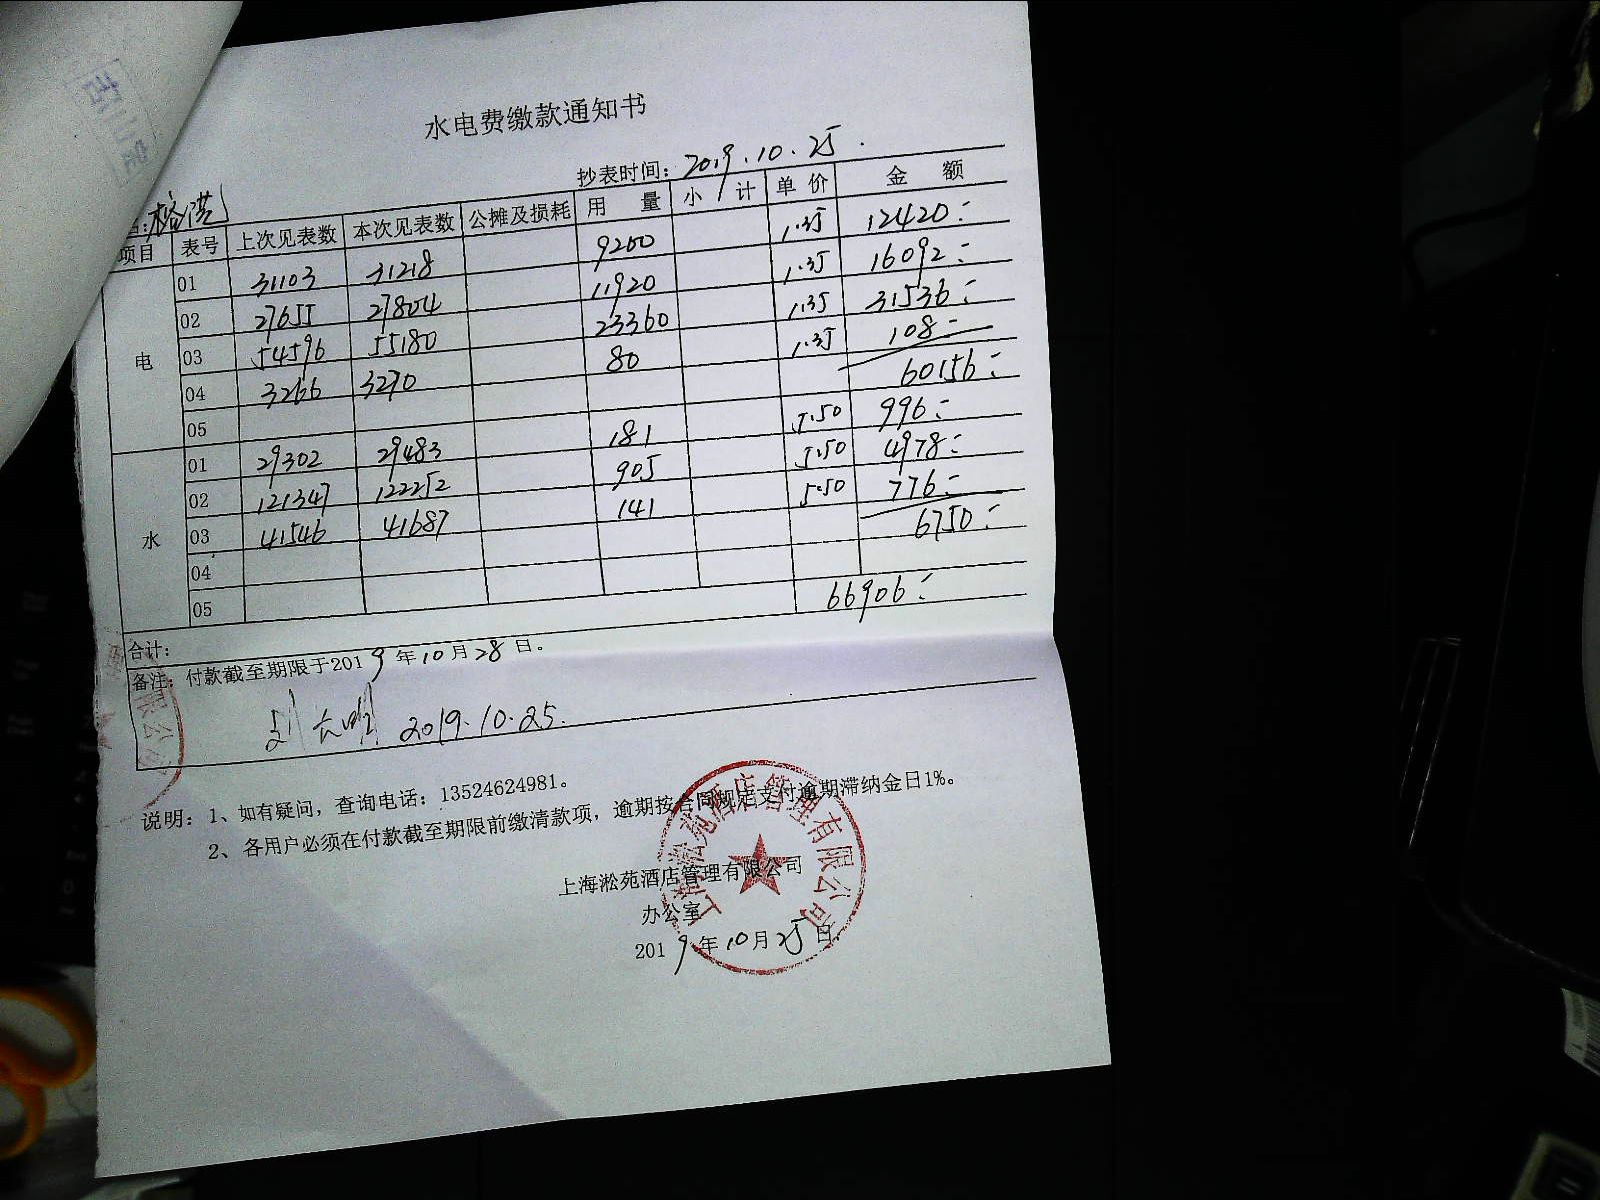 水电费缴款通知书
抄表时间：2019.10.25.
项目 表号 上次见表数 本次见表数 公摊及损耗 用 量 小 计 单 价 金 额
电 01 31103 31218 9200 1.35 12420
02 27655 27804 11920 1.35 16092
03 54596 55180 23360 1.35 31536
04 3266 3270 80 1.35 108
05 60156
水 01 29302 29483 181 5.50 996
02 121347 122252 905 5.50 4978
03 41546 41687 141 5.50 776
04 6750
05
合计： 66906
备注：付款截至期限于2019年10月28日。
2019.10.25.
说明：1、如有疑问，查询电话：13524624981。
2、各用户必须在付款截至期限前缴清款项，逾期按合同规定支付逾期滞纳金日1%。
上海淞苑酒店管理有限公司
办公室
2019年10月25日
上海淞苑酒店管理有限公司
限公